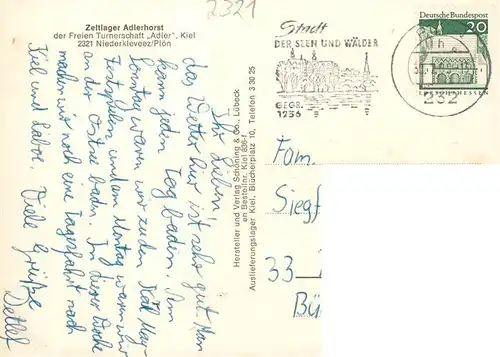 2321
Zeltlager Adlerhorst
der Freien Turnerschaft „Adler", Kiel
2321 Niederkleveez/Plön
Ihr Lieben!
das Wetter hier ist sehr gut. Man
kann jeden Tag baden. Am
Sonntag waren wir zu den Karl-May-
Festspielen und am Montag waren wir
an der Ostsee baden. In dieser Woche
machen wir noch eine Tagesfahrt nach
Kiel und Laboe. Viele Grüße
Detlef
Hersteller und Verlag Schöning & Co., Lübeck
en Bestellnr. Kiel 838-f
Auslieferungslager Kiel, Blücherplatz 10, Telefon 3 30 25
Stadt
DER SEEN UND WÄLDER
GEGR.
1236
Deutsche Bundespost
20
LORSCH/HESSEN
232
Fam.
Siegf
33